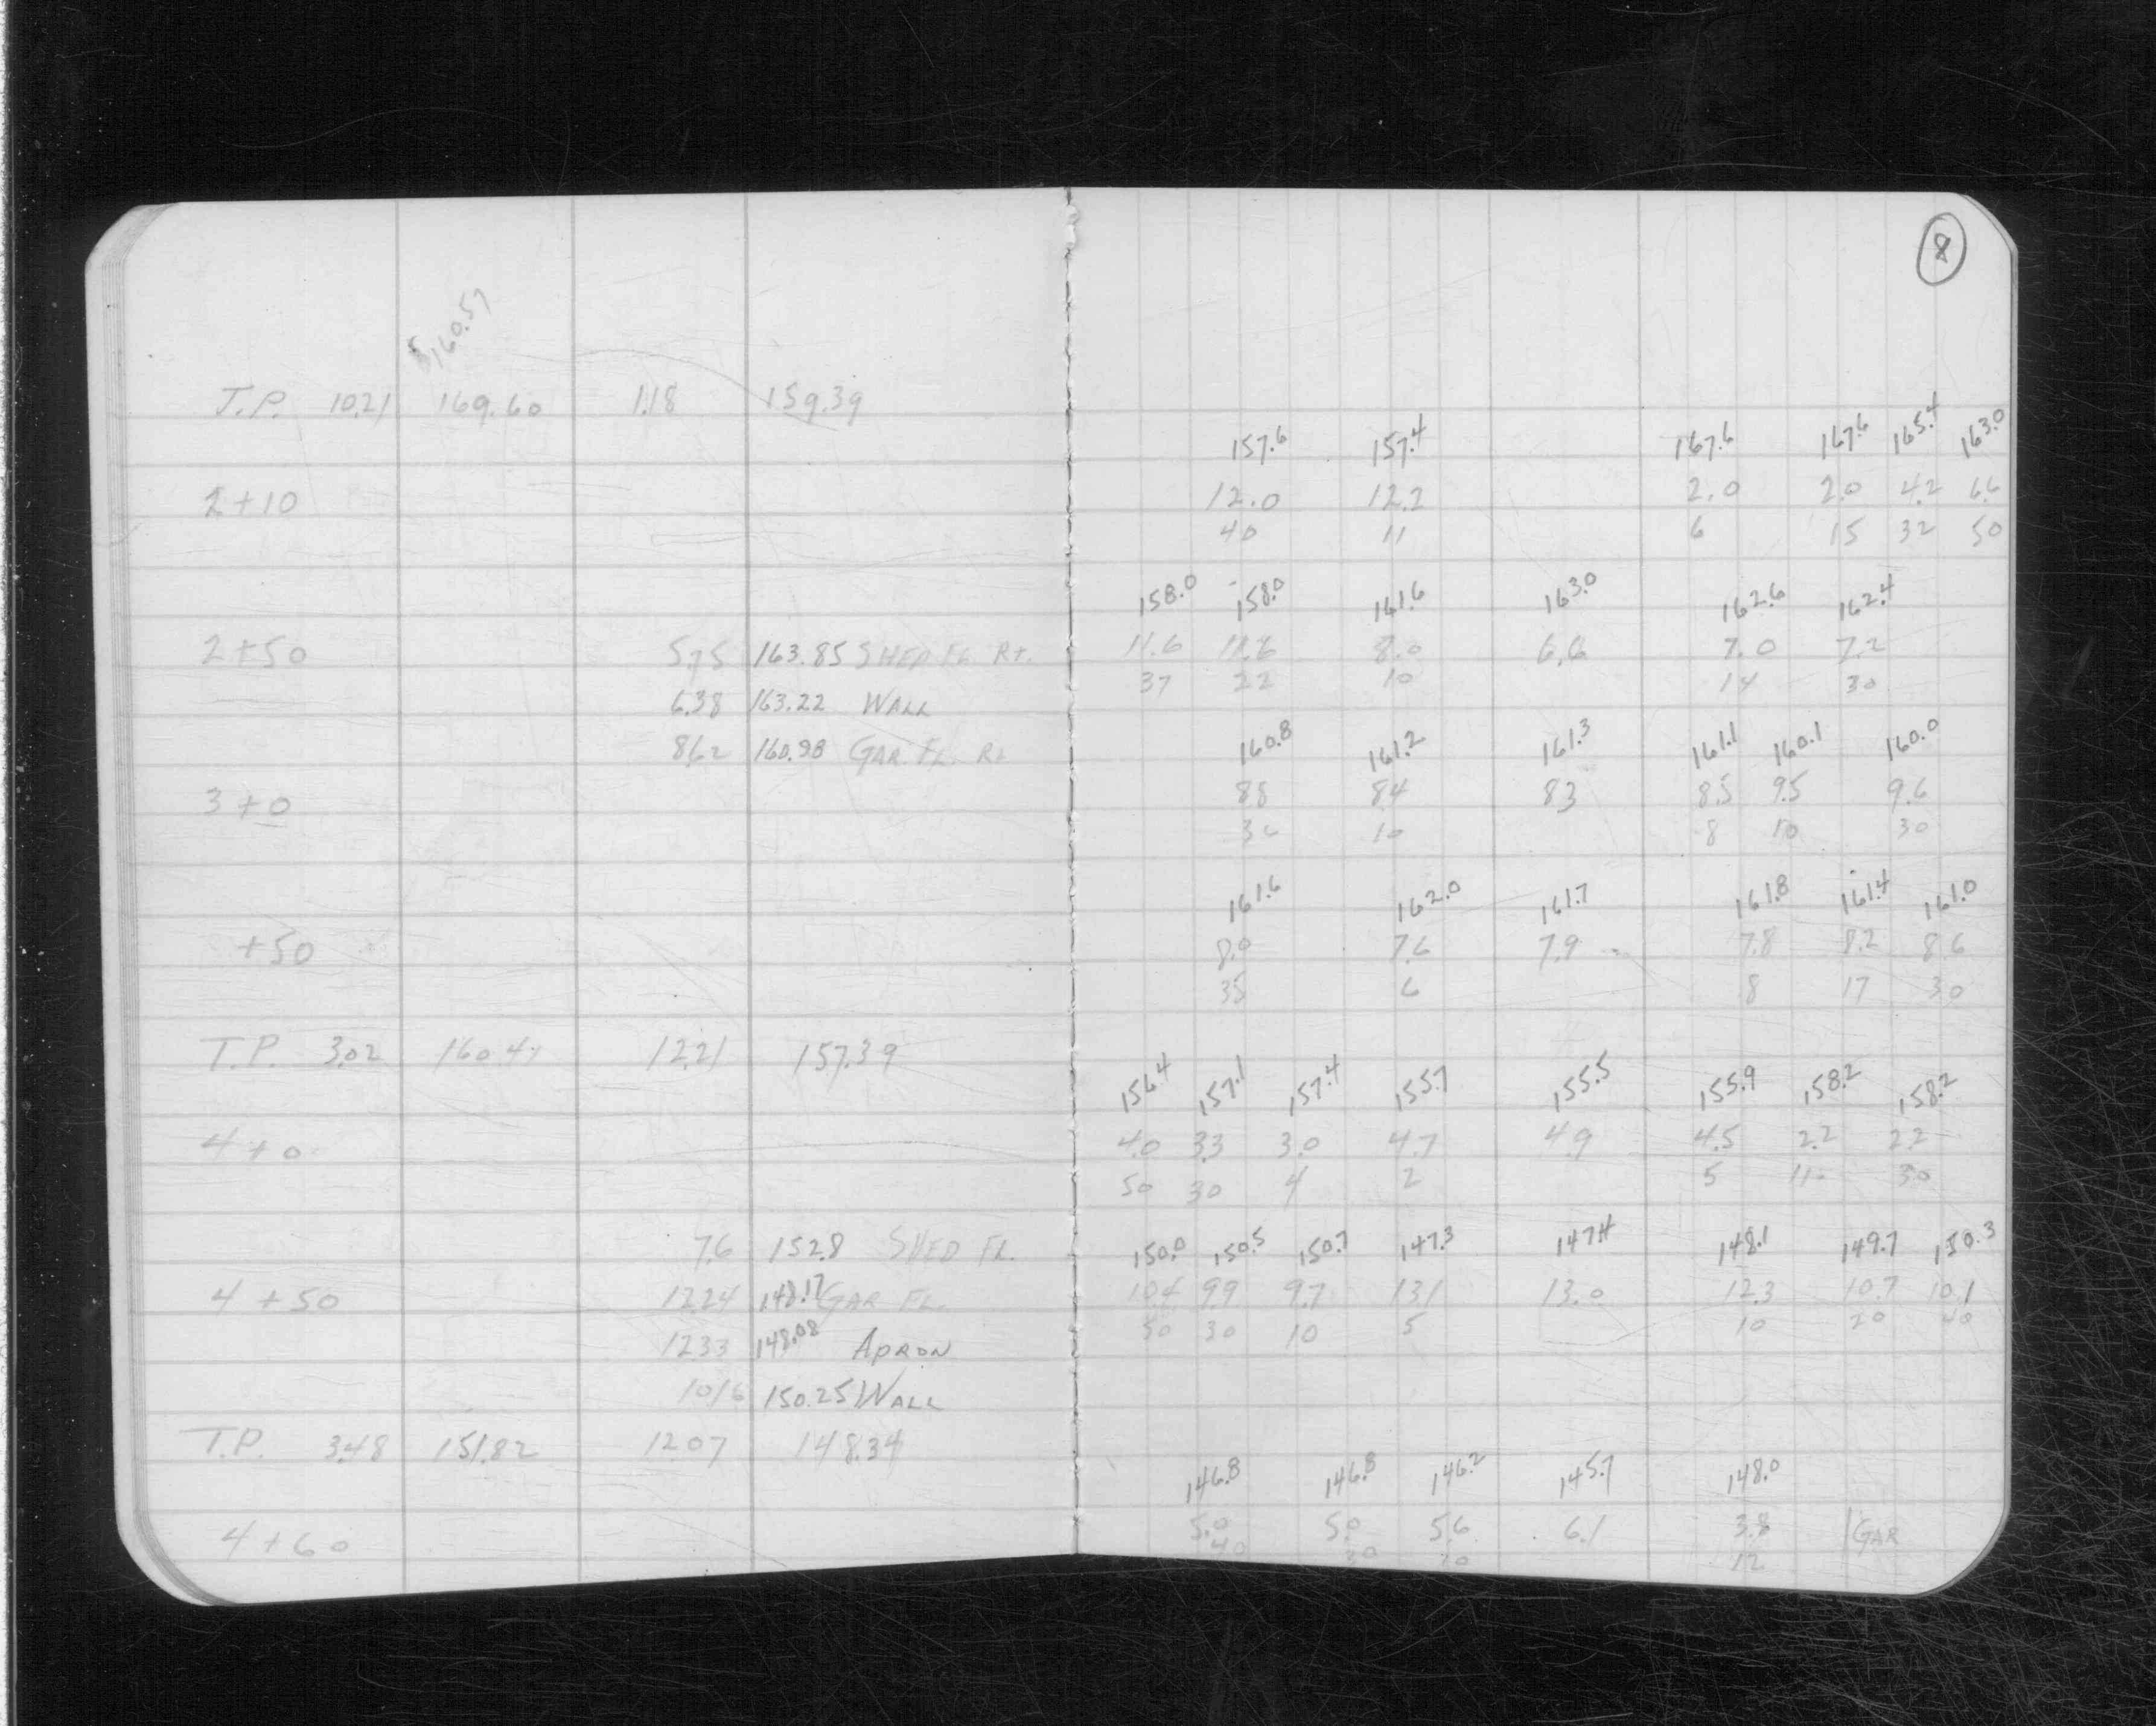 8
160.57
T.P. 10.21 169.60 1.18 159.39
157.6 157.4 167.6 167.6 165.4 163.0
2+10 12.0 12.2 2.0 2.0 4.2 6.6
40 11 6 15 32 50
158.0 158.0 161.6 163.0 162.6 162.4
2+50 5.75 163.85 SHED FL Rt. 11.6 11.6 8.0 6.6 7.0 7.2
37 22 10 14 30
6.38 163.22 WALL
160.8 161.2 161.3 161.1 160.1 160.0
8.62 160.98 GAR. FL. Rt
3+0 8.8 8.4 8.3 8.5 9.5 9.6
36 10 8 10 30
161.6 162.0 161.7 161.8 161.4 161.0
+50 8.0 7.6 7.9 7.8 8.2 8.6
35 6 8 17 30
T.P. 3.02 160.41 12.21 157.39
156.4 157.1 157.4 155.7 155.5 155.9 158.2 158.2
4+0 4.0 3.3 3.0 4.7 4.9 4.5 2.2 2.2
50 30 4 2 5 11 30
7.6 152.8 SHED FL. 150.0 150.5 150.7 147.3 147.4 148.1 149.7 150.3
4+50 12.24 148.17 GAR FL. 10.4 9.9 9.7 13.1 13.0 12.3 10.7 10.1
50 30 10 5 10 20 40
12.33 148.08 APRON
10.16 150.25 WALL
T.P. 3.48 151.82 12.07 148.34
146.8 146.8 146.2 145.7 148.0
4+60 5.0 5.0 5.6 6.1 3.8 GAR
40 30 10 12